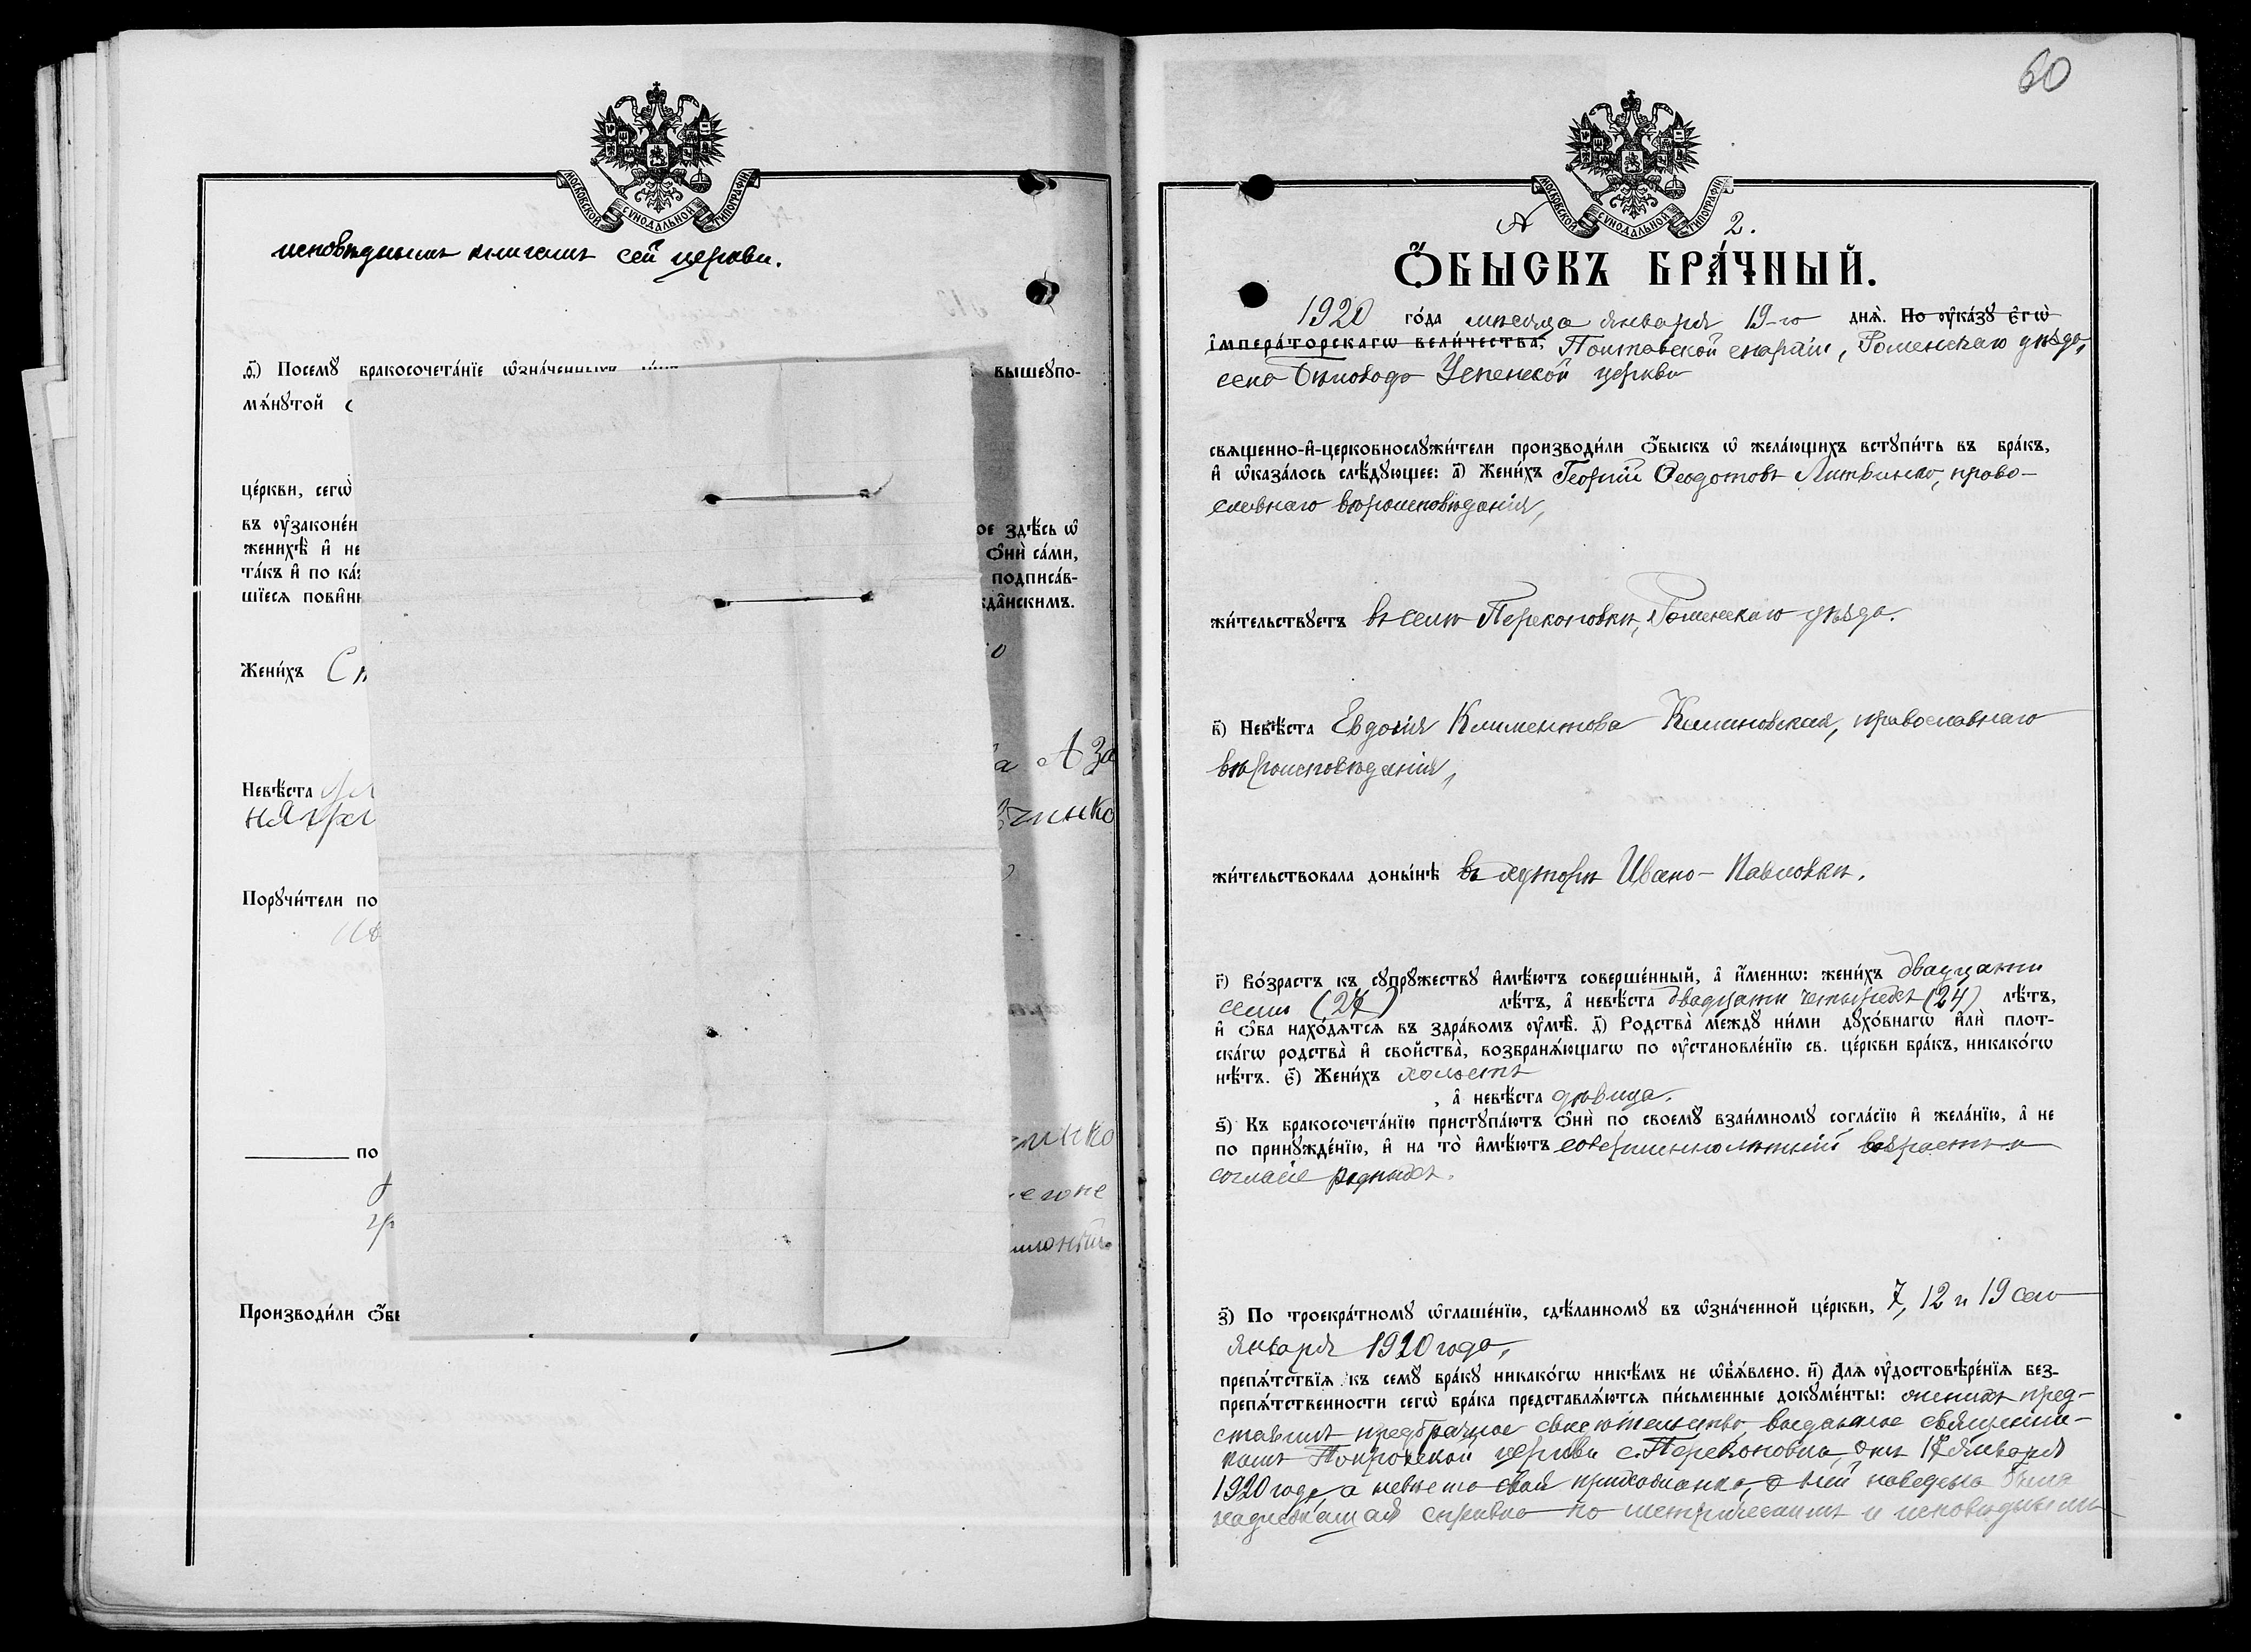 МОСКОВСКОЙ СУНОДАЛЬНОЙ ТИПОГРАФІИ
исповѣднымъ книгамъ сей церкви.
Посемꙋ бракосочета́нїе ѡ҆зна́ченныхъ вышеꙋпо-
мѧ́нꙋтой
це́ркви, сегѡ̀
въ ᲂу҆законе́н
ое здѣ́сь ѡ҆
женихѣ̀ и҆ не
Ѻ҆нѝ са́ми,
та́къ и҆ по ка́
подписа́в-
шїесѧ пови́нн
жда̂нскимъ.
Жени́хъ
а АЗа
Невѣ́ста
инко
Порꙋчи́тели по
по
Производи́ли Ѻ҆бы
60
МОСКОВСКОЙ СУНОДАЛЬНОЙ ТИПОГРАФІИ
2.
Ѻ҆БЫСКЪ БРА́ЧНЫЙ.
1920 го́да мѣсяца января 19-го днѧ̀. По ᲂу҆ка́зꙋ є҆гѡ̀
і҆мпера́торскагѡ вели́чества, Полтавской епархіи, Роменскаго уѣзда,
села Бѣловода Успенской церкви
свѧщенно-и҆-церковнослꙋжи́тели производи́ли Ѻ҆́быскъ ѡ҆ жела́ющихъ встꙋпи́ть въ бра́къ,
и҆ ѡ҆каза́лось слѣ́дꙋющее: а҃) Жени́хъ Георгій Ѳеодотовъ Литвинко, право-
славнаго вѣроисповѣданія,
жи́тельствꙋетъ въ селѣ Перекоповкѣ, Роменскаго уѣзда.
в҃) Невѣ́ста Евдокія Климентова Калиновская, православнаго
вѣроисповѣданія,
жи́тельствовала доны́нѣ въ хуторѣ Ивано-Павловкѣ.
г҃) Во́зрастъ къ сꙋпрꙋ́жествꙋ и҆мѣ́ютъ соверше́нный, а҆ и҆́меннѡ: жени́хъ двадцати
семи (27) лѣ́тъ, а҆ невѣ́ста двадцати четырехъ (24) лѣ́тъ,
и҆ Ѻ҆́ба нахо́дѧтсѧ въ здра́вомъ ᲂу҆мѣ̀. д҃) Родства̀ междꙋ̀ ни́ми дꙋхо́внагѡ и҆лѝ плот-
ска́гѡ родства̀ и҆ свойства̀, возбранѧ́ющагѡ по ᲂу҆становле́нїю св. це́ркви бра́къ, никако́гѡ
нѣ́тъ. є҃) Жени́хъ холостъ
, а҆ невѣ́ста дѣвица.
ѕ҃) Къ бракосочета́нїю пристꙋпа́ютъ Ѻ҆нѝ по своемꙋ̀ взаи́мномꙋ согла́сїю и҆ жела́нїю, а҆ не
по принꙋжде́нїю, и҆ на то̀ и҆мѣ́ютъ совершеннолѣтній возрастъ и
согласіе родныхъ.
з҃) По троекра́тномꙋ ѡ҆глаше́нїю, сдѣ́ланномꙋ въ ѡ҆зна́ченной це́ркви, 7, 12 и 19 сего
января 1920 года,
препѧ́тствїѧ къ семꙋ̀ бра́кꙋ никако́гѡ никѣ́мъ не ѡ҆б̾ѧ́влено. и҃) Длѧ ᲂу҆достовѣре́нїѧ без-
препѧ́тственности сегѡ̀ бра́ка представлѧ́ютсѧ пи́сьменные докꙋме́нты: женихъ пред-
ставилъ предбрачное свидѣтельство, выданное священни-
комъ Покровской церкви с. Перекоповки, отъ 17 января
1920 года, а невѣста своя прихожанка, о ней наведена была
надлежащая справка по метрическимъ и исповѣднымъ